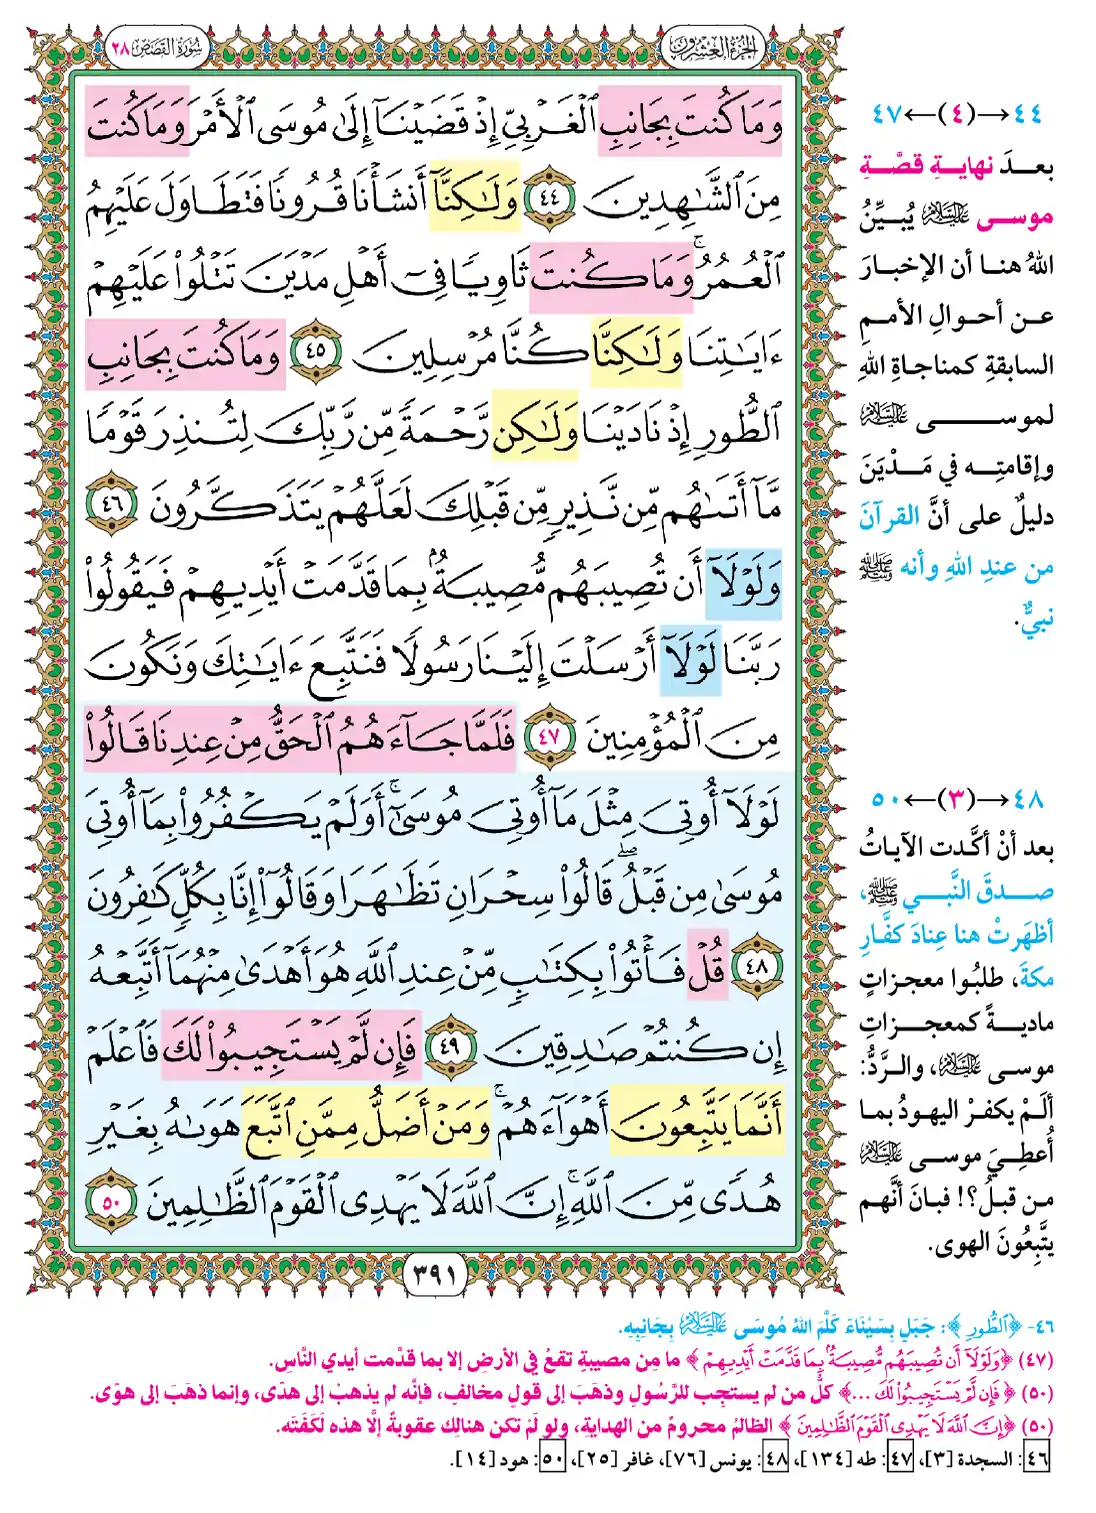 الجزء العشرون
سورة القصص ٢٨
وَمَا كُنتَ بِجَانِبِ ٱلْغَرْبِيِّ إِذْ قَضَيْنَآ إِلَىٰ مُوسَى ٱلْأَمْرَ وَمَا كُنتَ
مِنَ ٱلشَّٰهِدِينَ ٤٤ وَلَٰكِنَّآ أَنشَأْنَا قُرُونًا فَتَطَاوَلَ عَلَيْهِمُ
ٱلْعُمُرُ ۚ وَمَا كُنتَ ثَاوِيًا فِىٓ أَهْلِ مَدْيَنَ تَتْلُوا۟ عَلَيْهِمْ
ءَايَٰتِنَا وَلَٰكِنَّا كُنَّا مُرْسِلِينَ ٤٥ وَمَا كُنتَ بِجَانِبِ
ٱلطُّورِ إِذْ نَادَيْنَا وَلَٰكِن رَّحْمَةً مِّن رَّبِّكَ لِتُنذِرَ قَوْمًا
مَّآ أَتَىٰهُم مِّن نَّذِيرٍ مِّن قَبْلِكَ لَعَلَّهُمْ يَتَذَكَّرُونَ ٤٦
وَلَوْلَآ أَن تُصِيبَهُم مُّصِيبَةٌۢ بِمَا قَدَّمَتْ أَيْدِيهِمْ فَيَقُولُوا۟
رَبَّنَا لَوْلَآ أَرْسَلْتَ إِلَيْنَا رَسُولًا فَنَتَّبِعَ ءَايَٰتِكَ وَنَكُونَ
مِنَ ٱلْمُؤْمِنِينَ ٤٧ فَلَمَّا جَآءَهُمُ ٱلْحَقُّ مِنْ عِندِنَا قَالُوا۟
لَوْلَآ أُوتِىَ مِثْلَ مَآ أُوتِىَ مُوسَىٰٓ ۚ أَوَلَمْ يَكْفُرُوا۟ بِمَآ أُوتِىَ
مُوسَىٰ مِن قَبْلُ ۖ قَالُوا۟ سِحْرَانِ تَظَٰهَرَا وَقَالُوٓا۟ إِنَّا بِكُلٍّ كَٰفِرُونَ
٤٨ قُلْ فَأْتُوا۟ بِكِتَٰبٍ مِّنْ عِندِ ٱللَّهِ هُوَ أَهْدَىٰ مِنْهُمَآ أَتَّبِعْهُ
إِن كُنتُمْ صَٰدِقِينَ ٤٩ فَإِن لَّمْ يَسْتَجِيبُوا۟ لَكَ فَٱعْلَمْ
أَنَّمَا يَتَّبِعُونَ أَهْوَآءَهُمْ ۚ وَمَنْ أَضَلُّ مِمَّنِ ٱتَّبَعَ هَوَىٰهُ بِغَيْرِ
هُدًى مِّنَ ٱللَّهِ ۚ إِنَّ ٱللَّهَ لَا يَهْدِى ٱلْقَوْمَ ٱلظَّٰلِمِينَ ٥٠
٣٩١
٤٤→(٤)←٤٧
بعدَ نهايةِ قصَّةِ
موسى عليه السلام يُبيِّنُ
اللهُ هنا أن الإخبارَ
عن أحوالِ الأممِ
السابقةِ كمناجاةِ اللهِ
لموسى عليه السلام
وإقامتِه في مَدْيَنَ
دليلٌ على أنَّ القرآنَ
من عندِ اللهِ وأنه ﷺ
نبيٌّ.
٤٨→(٣)←٥٠
بعد أنْ أكَّدت الآياتُ
صدقَ النَّبي ﷺ،
أظهَرتْ هنا عِنادَ كفَّارِ
مكةَ، طلبُوا معجزاتٍ
ماديةً كمعجزاتِ
موسى عليه السلام، والرَّدُّ:
ألَمْ يكفرْ اليهودُ بما
أُعطِيَ موسى عليه السلام
من قبلُ؟! فبانَ أنَّهم
يتَّبِعُونَ الهوى.
٤٦- ﴿ٱلطُّورِ﴾: جَبَلٍ بِسَيْنَاءَ كَلَّمَ اللهُ مُوسَى عليه السلام بِجَانِبِهِ.
(٤٧) ﴿وَلَوْلَآ أَن تُصِيبَهُم مُّصِيبَةٌۢ بِمَا قَدَّمَتْ أَيْدِيهِمْ﴾ ما مِن مصيبةٍ تقعُ في الأرضِ إلا بما قدَّمت أيدي النَّاسِ.
(٥٠) ﴿فَإِن لَّمْ يَسْتَجِيبُوا۟ لَكَ ...﴾ كلُّ من لم يستجِب للرَّسُولِ وذهَبَ إلى قولٍ مخالفٍ، فإنَّه لم يذهبْ إلى هدًى، وإنما ذهَبَ إلى هوًى.
(٥٠) ﴿إِنَّ ٱللَّهَ لَا يَهْدِى ٱلْقَوْمَ ٱلظَّٰلِمِينَ﴾ الظالمُ محرومٌ من الهدايةِ، ولو لَمْ تكن هنالِك عقوبةٌ إلَّا هذه لَكَفَتْه.
٤٦: السجدة [٣]، ٤٧: طه [١٣٤]، ٤٨: يونس [٧٦]، غافر [٢٥]، ٥٠: هود [١٤].